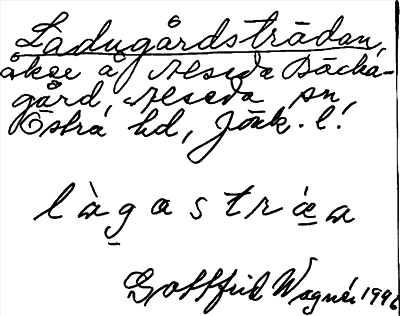 Ladugårdsträdan,
åkse å Alseda Backa-
gård, Alseda sn,
Östra hd, Jönk. l.
làgastræa
Gottfrid Wagnér 1996